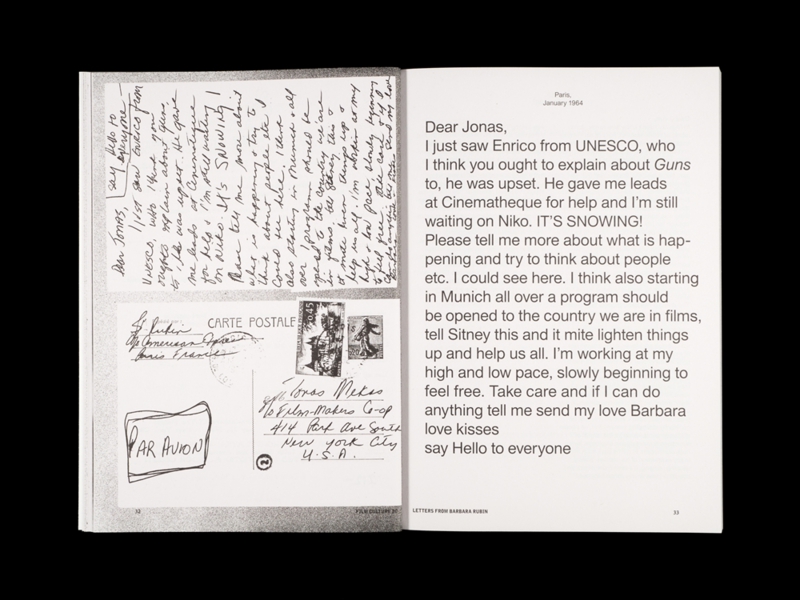 Dear Jonas, say Hello to
everyone—
I just saw Enrico from
UNESCO, who I think you
ought to explain about Guns
to, he was upset. He gave
me leads at Cinematheque
for help & I'm still waiting
on Niko. It's SNOWING!
Please tell me more about
what is happening & try to
think about people etc I
could see here. I think
also starting in Munich all
over a program should be
opened to the country we are
in films, tell Sitney this &
it mite lighten things up &
help us all. I'm working at my
high & low pace, slowly beginning
to feel free. Take care & if I
B. Rubin
c/o American Express
Paris France
CARTE POSTALE
0.45
Jonas Mekas
c/o Film-Makers Co-op
414 Park Ave South
New York City
U.S.A.
PAR AVION
2
32
FILM CULTURE
Paris,
January 1964
Dear Jonas,
I just saw Enrico from UNESCO, who
I think you ought to explain about Guns
to, he was upset. He gave me leads
at Cinematheque for help and I'm still
waiting on Niko. IT'S SNOWING!
Please tell me more about what is hap-
pening and try to think about people
etc. I could see here. I think also starting
in Munich all over a program should
be opened to the country we are in films,
tell Sitney this and it mite lighten things
up and help us all. I'm working at my
high and low pace, slowly beginning to
feel free. Take care and if I can do
anything tell me send my love Barbara
love kisses
say Hello to everyone
LETTERS FROM BARBARA RUBIN
33